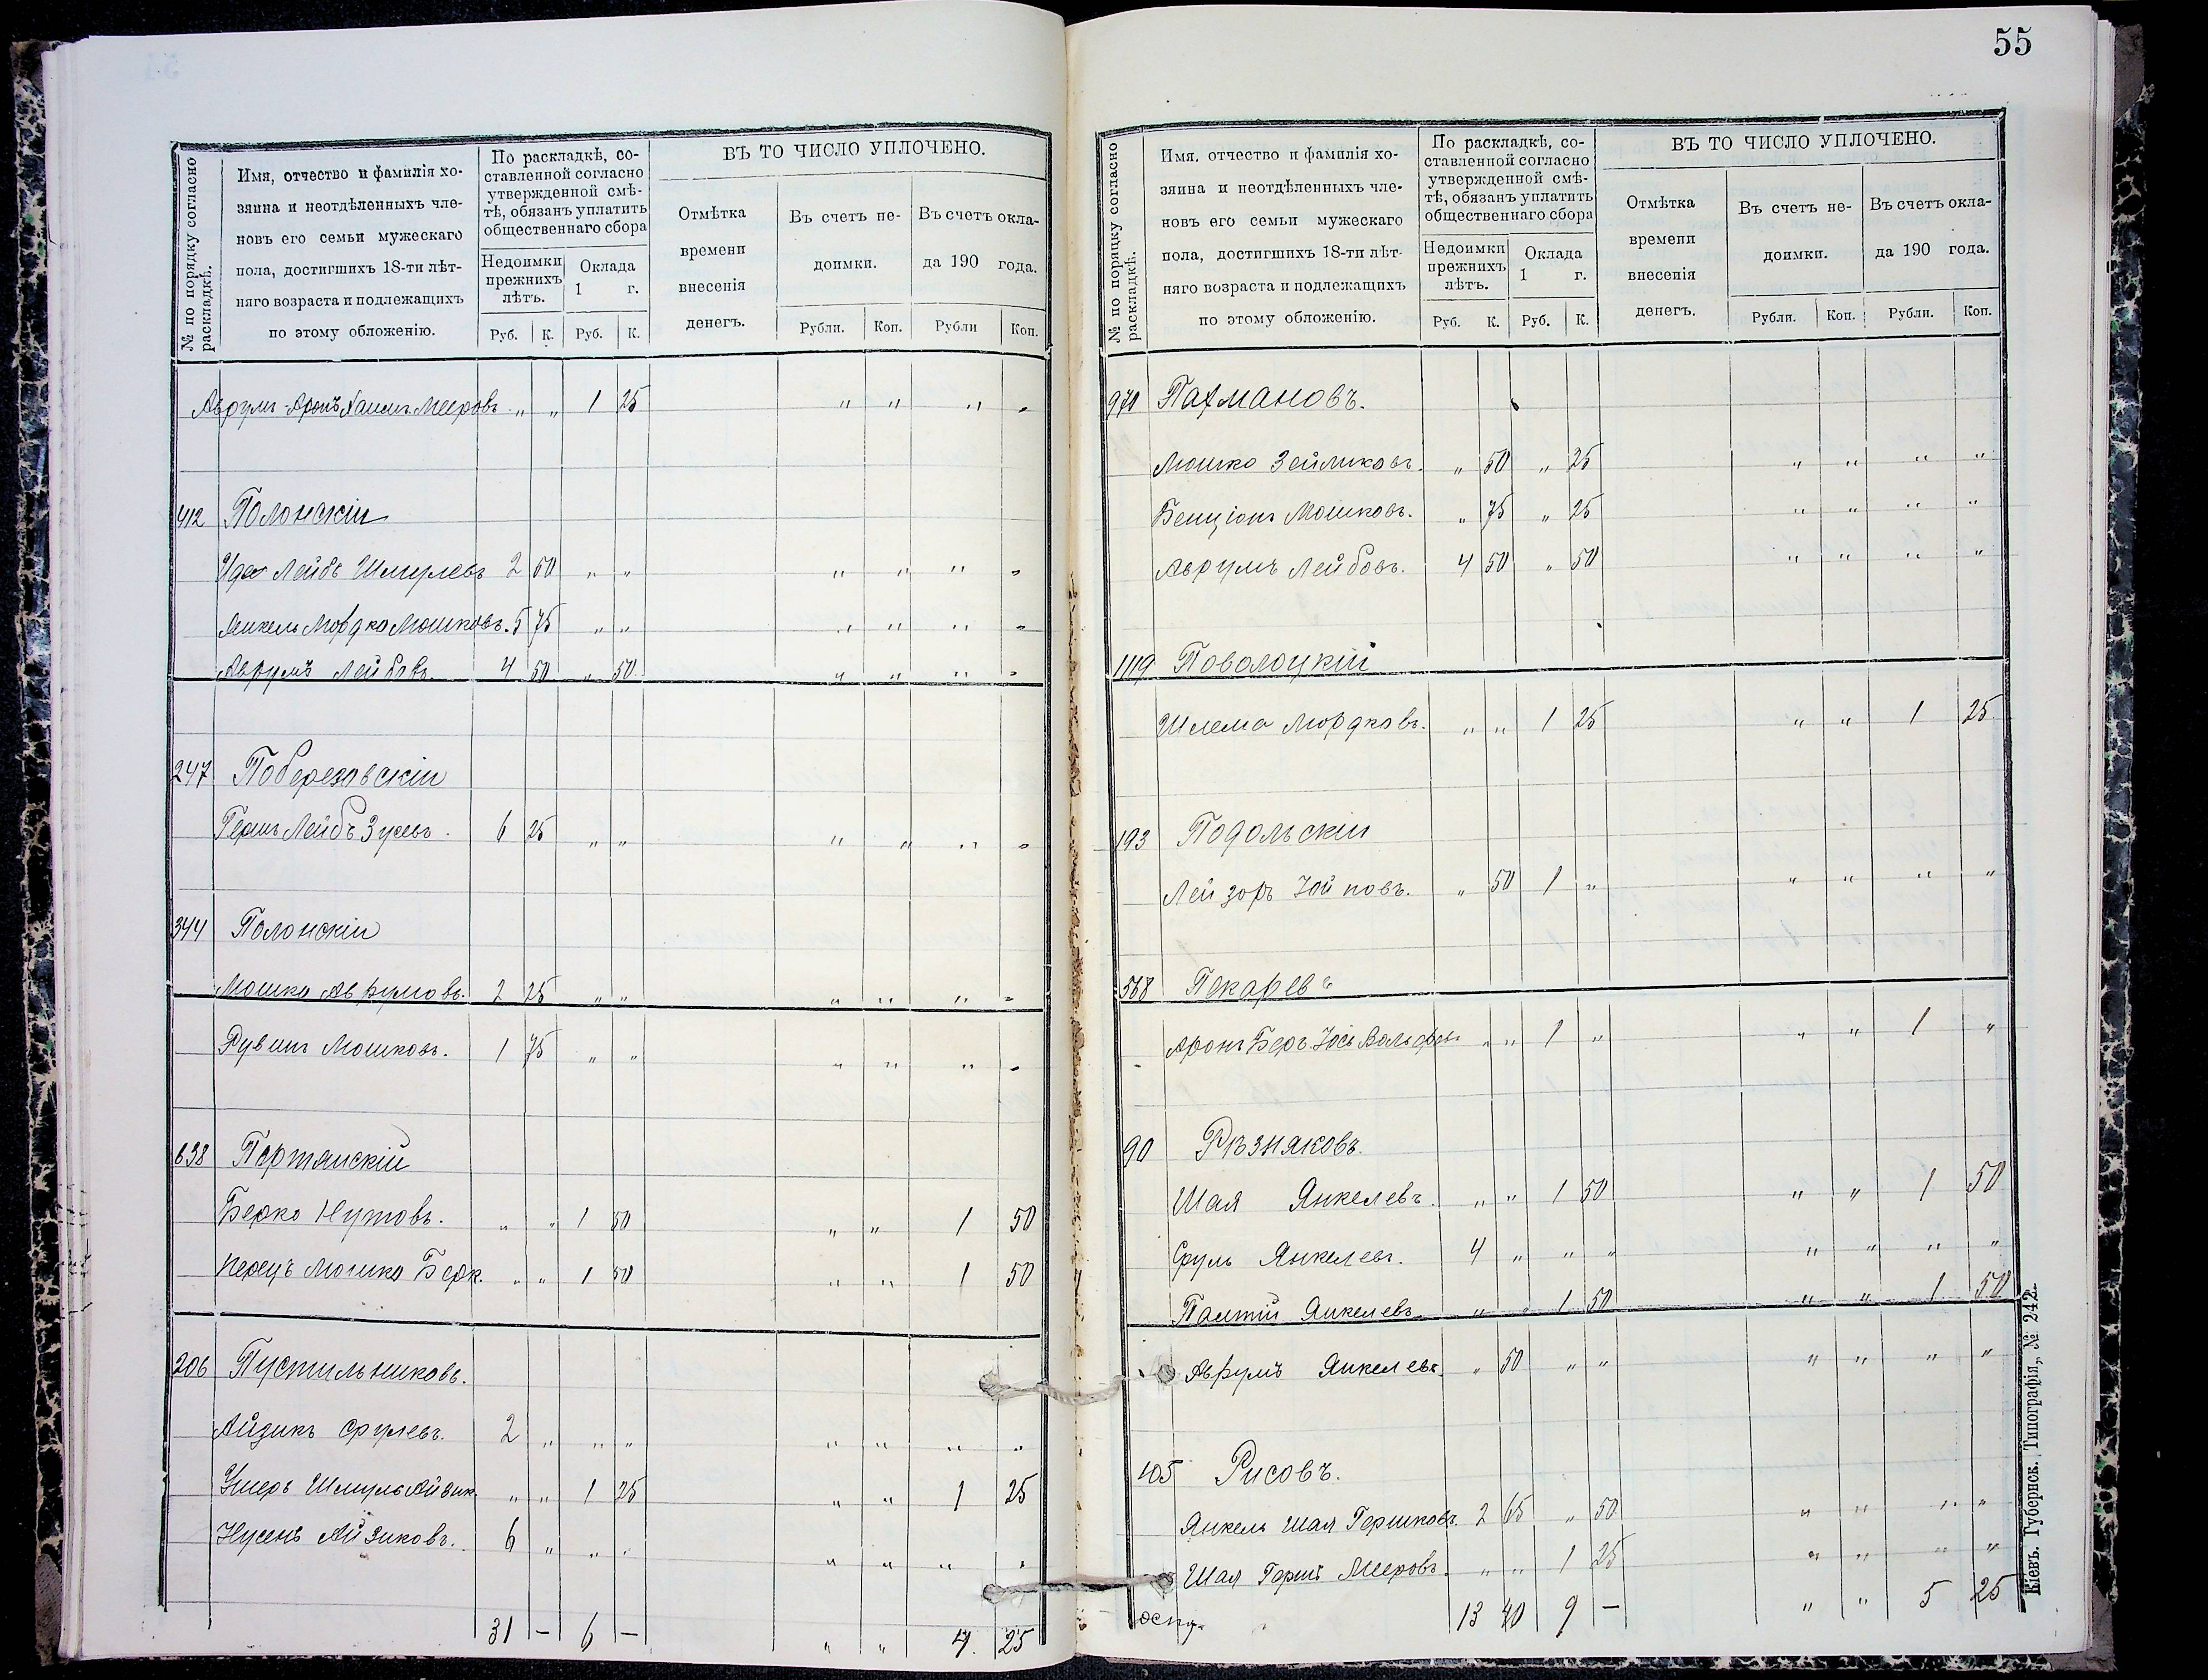 № по порядку согласно раскладкѣ.
Имя, отчество и фамилія хо-
зяина и неотдѣленныхъ чле-
новъ его семьи мужескаго
пола, достигшихъ 18-ти лѣт-
няго возраста и подлежащихъ
по этому обложенію.
По раскладкѣ, со-
ставленной согласно
утвержденной смѣ-
тѣ, обязанъ уплатить
общественнаго сбора
Недоимки прежнихъ лѣтъ.
Оклада 1 г.
Руб. К. Руб. К.
ВЪ ТО ЧИСЛО УПЛОЧЕНО.
Отмѣтка времени внесенія денегъ.
Въ счетъ не-
доимки.
Въ счетъ окла-
да 190 года.
Рубли. Коп. Рубли Коп.
Аврумъ-Аронъ Хаимъ Мееровъ „ „ 1 25 „ „ „ „
412 Полонскій
Лейбъ Шмулевъ 2 50 „ „ „ „ „ „
Янкель Мордко Мошковъ. 5 75 „ „ „ „ „ „
Аврумъ Лейбовъ 4 50 „ 50 „ „ „ „
247 Поберезовскій
Гершъ Лейбъ Зусевъ. 6 25 „ „ „ „ „ „
344 Полонскій
Мошко Аврумовъ. 2 25 „ „ „ „ „ „
Рувинъ Мошковъ. 1 75 „ „ „ „ „ „
638 Портянскій
Берко Нутовъ. „ „ 1 50 „ „ 1 50
Перецъ Мошко Берк. „ „ 1 50 „ „ 1 50
206 Пустильниковъ.
Айзикъ Срулевъ. 2 „ „ „ „ „ „ „
Ушеръ Шмуль Айзик. „ „ 1 25 „ „ 1 25
Нусенъ Айзиковъ. 6 „ „ „ „ „ „ „
31 – 6 – „ „ 4. 25
55
№ по порядку согласно раскладкѣ.
Имя, отчество и фамилія хо-
зяина и неотдѣленныхъ чле-
новъ его семьи мужескаго
пола, достигшихъ 18-ти лѣт-
няго возраста и подлежащихъ
по этому обложенію.
По раскладкѣ, со-
ставленной согласно
утвержденной смѣ-
тѣ, обязанъ уплатить
общественнаго сбора
Недоимки прежнихъ лѣтъ.
Оклада 1 г.
Руб. К. Руб. К.
ВЪ ТО ЧИСЛО УПЛОЧЕНО.
Отмѣтка времени внесенія денегъ.
Въ счетъ не-
доимки.
Въ счетъ окла-
да 190 года.
Рубли. Коп. Рубли. Коп.
Пахмановъ.
Мошко Зейликовъ. „ 50 „ 25 „ „ „ „
Бенціонъ Мошковъ. „ 75 „ 25 „ „ „ „
Аврумъ Лейбовъ. 4 50 „ 50 „ „ „ „
1119 Поволоцкій
Шлема Мордковъ. „ „ 1 25 „ „ 1 25
193 Подольскій
Лейзоръ „ 50 1 „ „ „ „ „
568 Пекаревъ
Аронъ Беръ Іосъ Вольфовъ „ „ 1 „ „ „ 1 „
90 Рѣзняковъ.
Шая Янкелевъ. „ „ 1 50 „ „ 1 50
Сруль Янкелевъ. 4 „ „ „ „ „ „ „
Палтій Янкелевъ „ „ 1 50 „ „ 1 50
Аврумъ Янкелевъ. „ 50 „ „ „ „ „ „
105 Рисовъ.
Янкель Шая Гершковъ. 2 65 „ 50 „ „ „ „
Шая Гершъ Мееровъ. „ „ 1 25 „ „ „ „
13 40 9 – „ „ 5 25
Кіевъ. Губернск. Типографія, № 242.